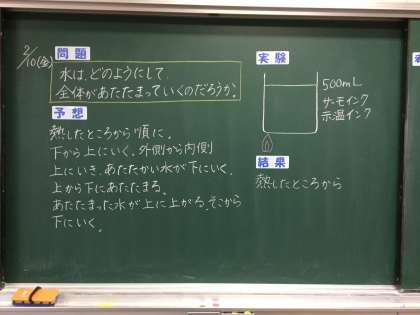 2/10(金)
問題
水は、どのようにして、
全体があたたまっていくのだろうか。
予想
熱したところから順に。
下から上にいく。外側から内側
上にいき、あたたかい水が下にいく。
上から下にあたたまる。
あたたまった水が上に上がる。そこから
下にいく。
実験
500mL
サーモインク
示温インク
結果
熱したところから